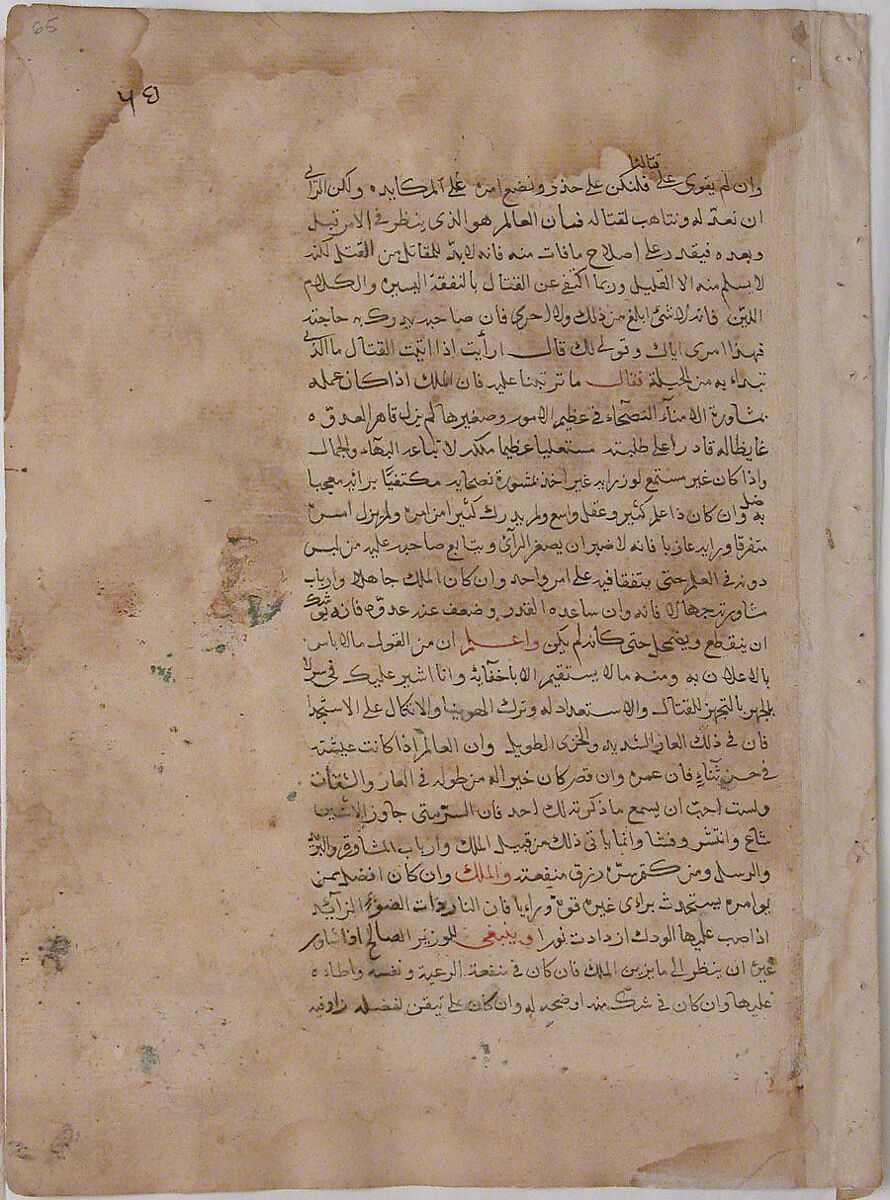 65
قتالنا
وان لم يقوى على فلنكن على حذر ونضع امره على المكايده ولكن الراى
ان نعتد له ونتاهب لقتاله فان العالم هو الذى ينظر فى الامر قبل
وبعده فيقدر على اصلاح ما فات منه فانه لا بد للمقاتل من القتل
لا يسلم منه الا القليل وربما اكتفى عن القتال بالنفقة اليسيره والكلام
اللين فانه لا شئ ابلغ من ذلك ولا احرى فان صاحبه يدرك به حاجته
فهذا امرى اياك وقولى لك قال ارأيت اذا اتيت القتال ما الذى
تبداء به من الحيلة فقال ما ترتبنا عليه فان الملك اذا كان عمله
بمشاورة الامنآء النصحاء فى عظيم الامور وصغيرها لم يزل قاهر العدوه
غايظا له قادرا على طلبته مستعليا عظيما ملكه لا تباعد البهاء والجمال
واذا كان غير مستمع لوزرايه غير اخذ بمشورة نصحايه مكتفيا برائه معجبا
به وان كان ذا علم كثير وعقل واسع ولم يدرك كثيرا من امره ولم يزل امره
متفرقا ورايه عازبا فانه لا ضير ان يصغر الرأى ويتابع صاحبه عليه من ليس
دونه فى العلم حتى يتفقا فيه على امر واحد وان كان الملك جاهلا وارباب
مشاورته جهالا فانه وان ساعده القدر وضعف عنه عدوه فانه يوشك
ان ينقطع ويضمحل حتى كأنه لم يكن واعلم ان من القول ما لا باس
بالاعلان به ومنه ما لا يستقيم الا باخفآئه وانا اشير عليك فى سر لا
بالجهر بالتجهز للقتال والاستعداد له وترك الهوينا والاتكال على
فان فى ذلك العار الشديد والخزى الطويل وان العالم اذا كانت عيشته
فى حسن ثناء فان عمره وان قصر كان خيرا له من طوله فى العار
ولست احب ان يسمع ما ذكرته لك احد فان السر متى جاوز الاثنين
شاع وانتشر وفشا وانما ياتى ذلك من قبل الملك وارباب المشاوره والبرد
والرسل ومن كتم سره رزق منفعته والملك وان كان افضل ممن
يوامره يستحدث براى غيره قوة ورايا فان النار ذات الضوء الزآئد
اذا صب عليها الودك ازدادت نورا وينبغى للوزير الصالح اذا شاور
غيره ان ينظر الى ما يزين الملك فان كان فى منفعة الرعية ونفسه واطاه
عليها وان كان فى شك منه اوضحه له وان كان على تيقن لفضله زاد فيه